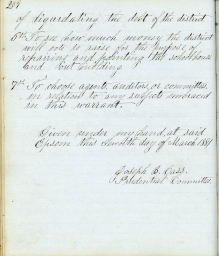 207
of liquidating the debt of the district
6th To see how much money the district
will vote to raise for the purpose of
repairing and painting the schoolhouse
and out building
7th To choose agents, auditors, or committee,
in relation to any subject embraced
in this warrant.
Given under my hand, at said
Epsom this eleventh day of March 1881
Joseph B. Cass
Prudential Committee